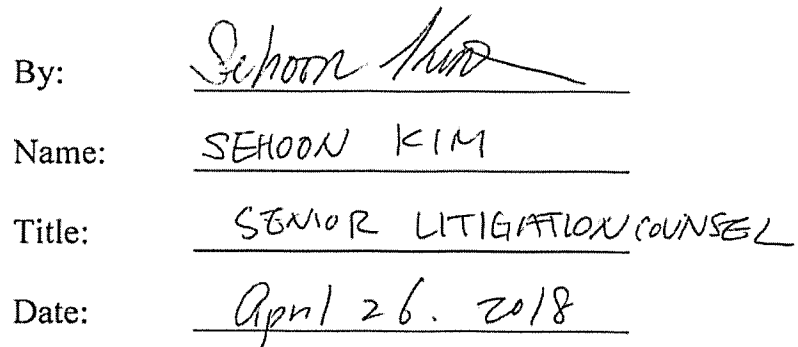 By: Sehoon Kim
Name: SEHOON KIM
Title: SENIOR LITIGATION COUNSEL
Date: April 26. 2018